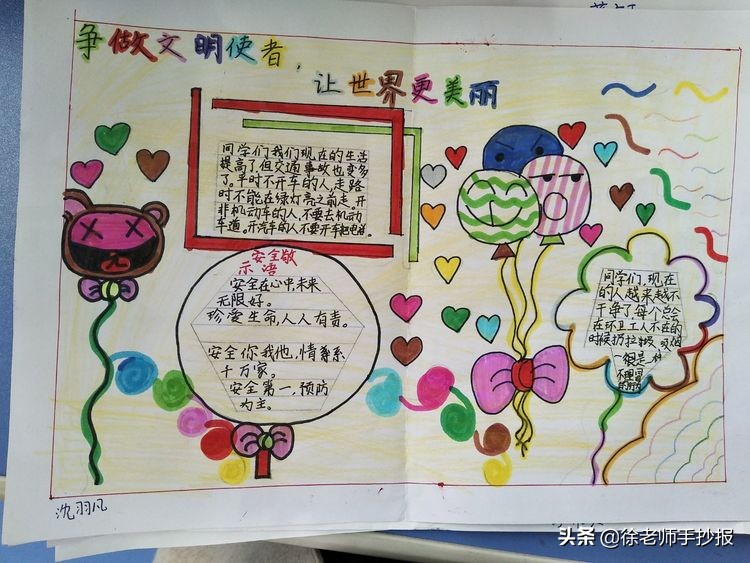 争做文明使者,
让世界更美丽
同学们我们现在的生活
提高了,但交通事故也变多
了。平时不开车的人,走路
时不能在绿灯亮之前走。开
非机动车的人,不要去机动
车道。开汽车的人不要开车
安全敬
示语
安全在心中,未来
无限好。
珍爱生命,人人有责。
安全你我他,情系
千万家。
安全第一,预防
为主。
同学们,现在
的人越来越不
干净了每个
在环卫工人不在的
时候扔垃圾
沈羽凡
头条 @徐老师手抄报